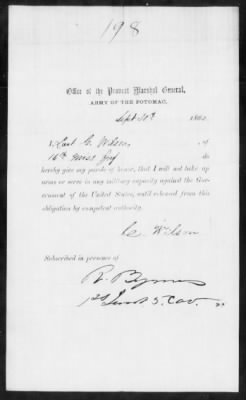 198
Office of the Provost Marshal General,
ARMY OF THE POTOMAC,
Sept 30th 1862
I, Lieut C. Wilson, of
16th Miss Inf do
hereby give my parole of honor, that I will not take up
arms or serve in any military capacity against the Gov-
ernment of the United States, until released from this
obligation by competent authority.
C. Wilson
Subscribed in presence of
R. Byrnes
1st Lieut 5. Cav.